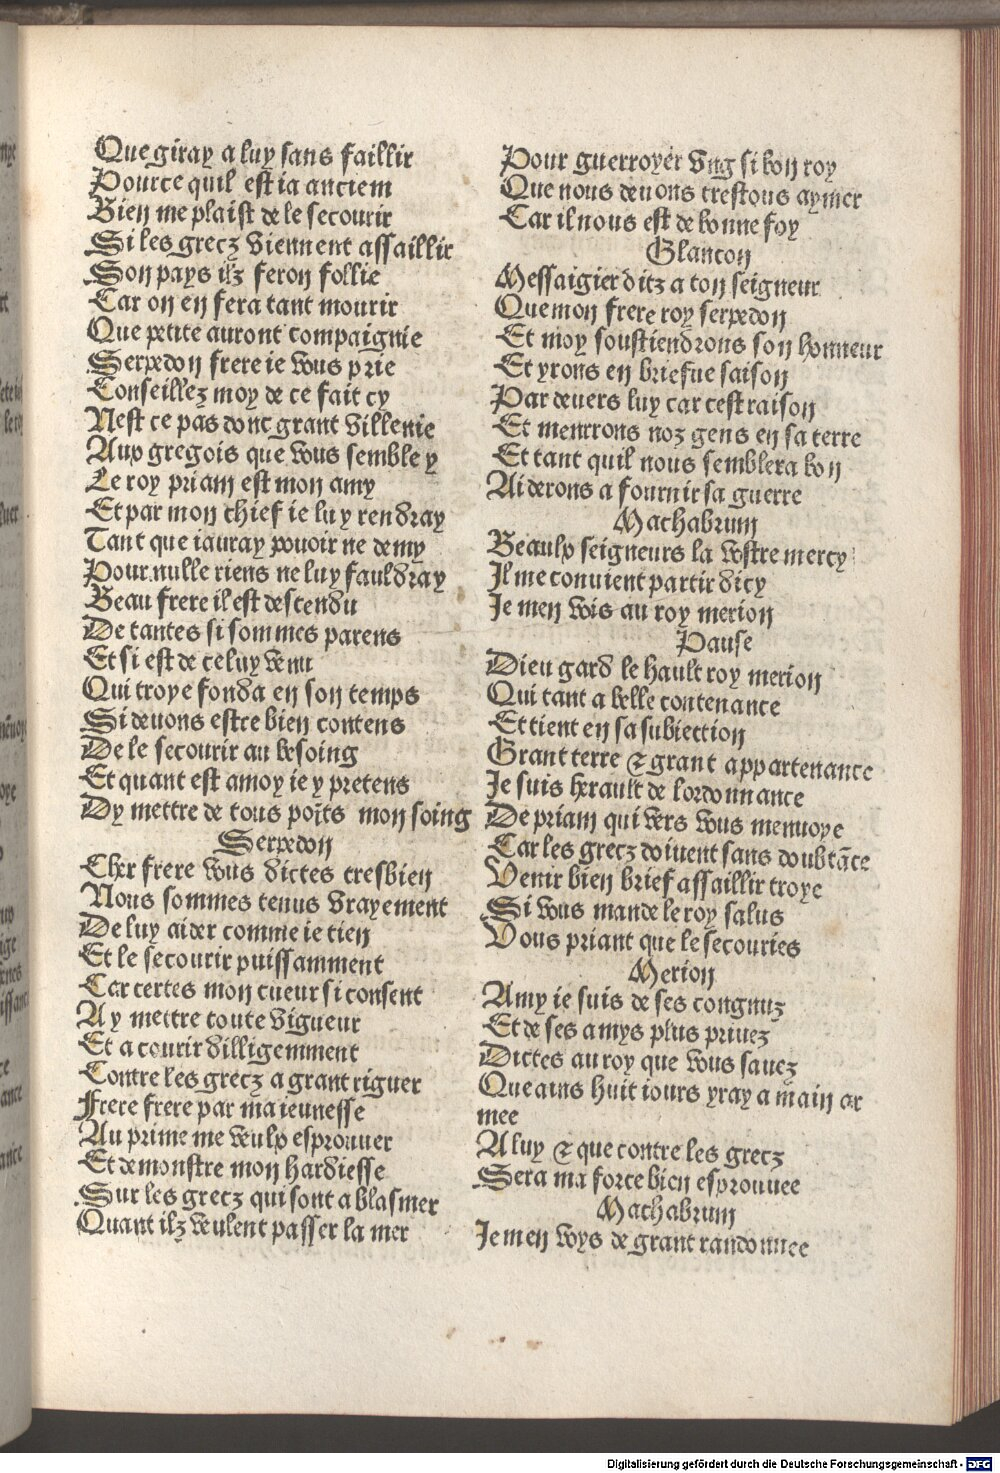 Que giray a luy sans faillir
Pource quil est ia anciem
Bien me plaist de le secourir
Si les grecz viennent assaillir
Son pays ilz feron follie
Car on en fera tant mourir
Que petite auront compaignie
Serpedon frere ie vous prie
Conseillez moy de ce fait cy
Nest ce pas donc grant villenie
Aux gregois que vous semble y
Le roy priam est mon amy
Et par mon chief ie luy rendray
Tant que iauray pouoir ne demy
Pour nulle riens ne luy fauldray
Beau frere il est descendu
De tantes si sommes parens
Et si est de celuy venu
Qui troye fonda en son temps
Si deuons estre bien contens
De le secourir au besoing
Et quant est amoy ie y pretens
Dy mettre de tous poĩts mon soing
Serpedon
Cher frere vous dictes tresbien
Nous sommes tenus vrayement
De luy aider comme ie tien
Et le secourir puissamment
Car certes mon cueur si consent
A y mettre toute vigueur
Et a courir dilligemment
Contre les grecz a grant riguer
Frere frere par ma ieunesse
Au prime me veulx esprouuer
Et demonstre mon hardiesse
Sur les grecz qui sont a blasmer
Quant ilz veulent passer la mer
Pour guerroyer vng si bon roy
Que nous deuons trestous aymer
Car il nous est de bonne foy
Glancon
Messaigier ditz a ton seigneur
Que mon frere roy serpedon
Et moy soustiendrons son honneur
Et yrons en briefue saison
Par deuers luy car cest raison
Et menrrons noz gens en sa terre
Et tant quil nous semblera bon
Aiderons a fournir sa guerre
Machabrum
Beaulx seigneurs la vostre mercy
Il me conuient partir dicy
Je men vois au roy merion
Pause
Dieu gard le hault roy merion
Qui tant a belle contenance
Et tient en sa subiection
Grant terre & grant appartenance
Je suis herault de lordonnance
De priam qui vers vous menuoye
Car les grecz doiuent sans doubtãce
Venir bien brief assaillir troye
Si vous mande le roy salus
Vous priant que le secouries
Merion
Amy ie suis de ses congnuz
Et de ses amys plus priuez
Dictes au roy que vous sauez
Que ains huit iours yray a main ar
mee
A luy & que contre les grecz
Sera ma force bien esprouuee
Machabrum
Je men voys de grant randonnee
Digitalisierung gefördert durch die Deutsche Forschungsgemeinschaft - DFG